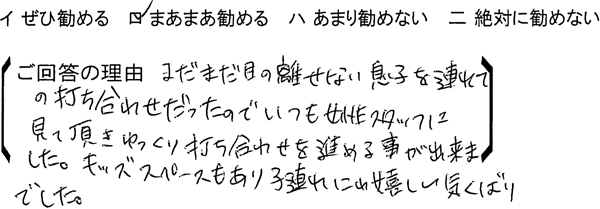 イ ぜひ勧める ロ まあまあ勧める ハ あまり勧めない ニ 絶対に勧めない
ご回答の理由 まだまだ目の離せない息子を連れて
の打ち合わせだったのでいつも女性スタッフに
見て頂きゆっくり打ち合わせを進める事が出来ま
した。キッズスペースもあり子連れには嬉しい気くばり
でした。